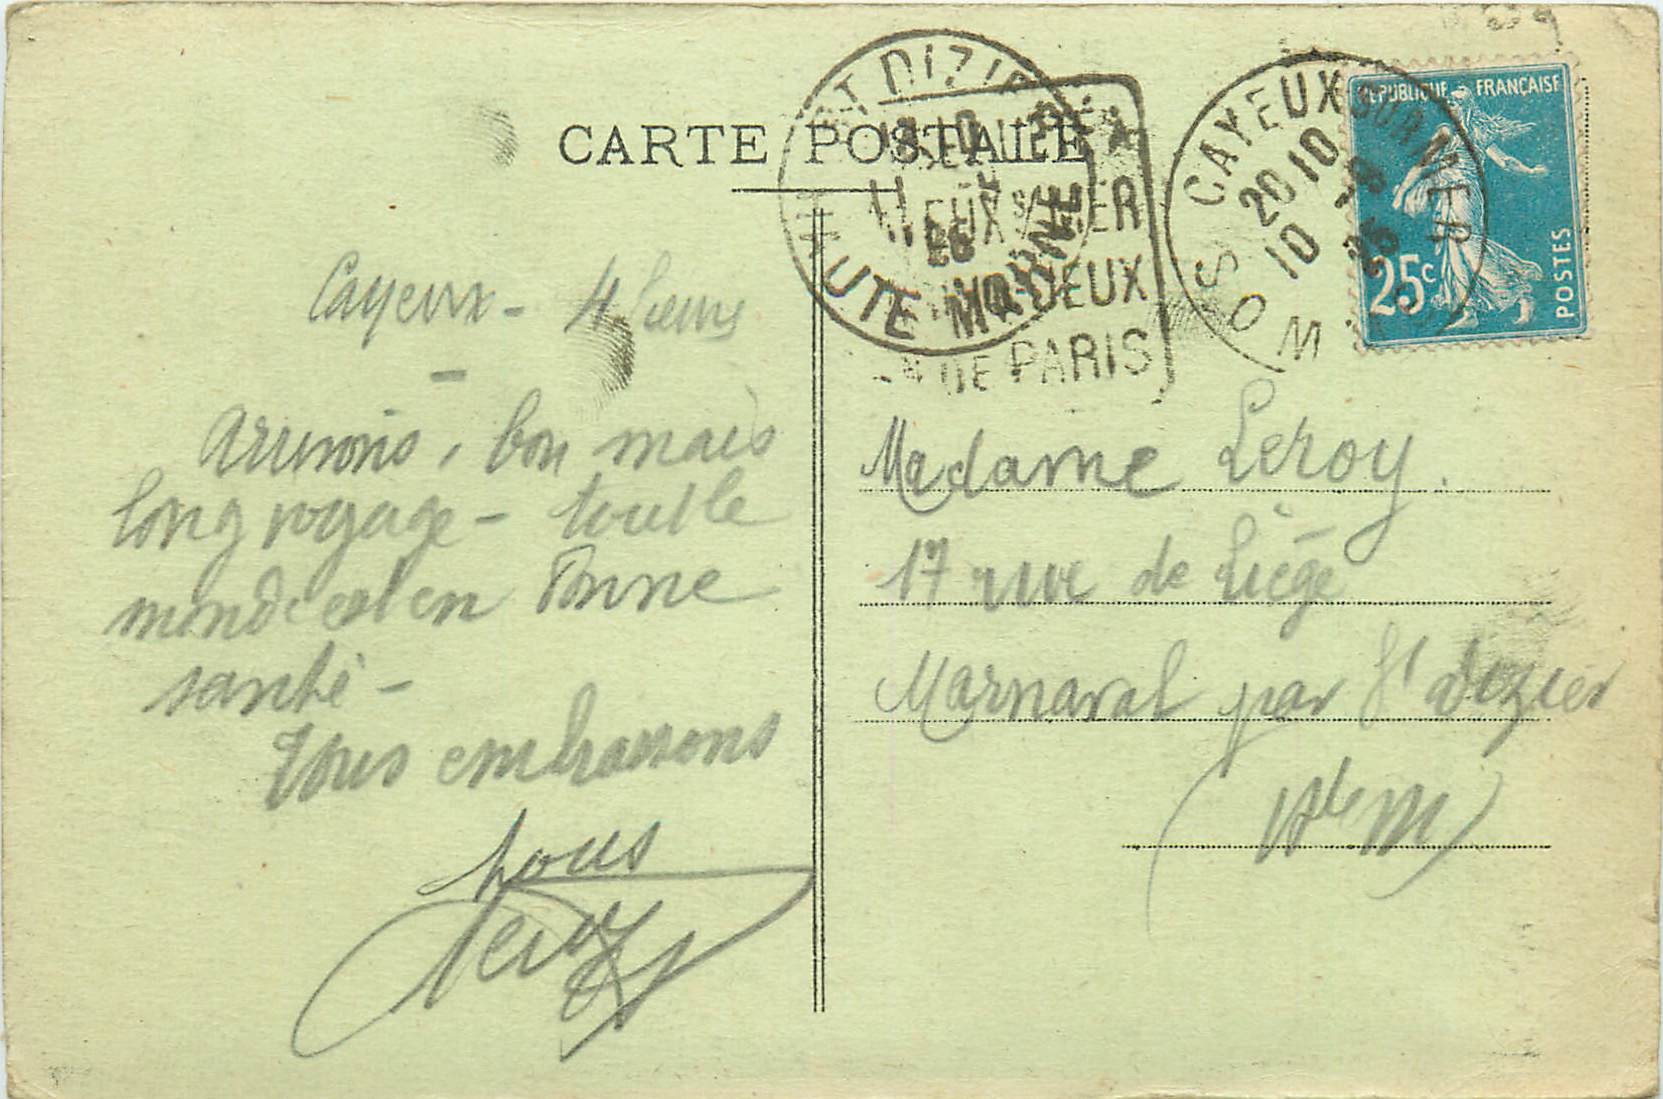 CARTE POSTALE
ST DIZIER
HAUTE MARNE
11
26
EUX S/MER
DEUX
DE PARIS
CAYEUX SUR MER
20 10
10 8
26
SOMME
REPUBLIQUE FRANÇAISE
25c
POSTES
Cayeux - 4 heures
Arrivons, bon mais
long voyage - tout le
monde est en bonne
santé -
Vous embrassons
tous
Leroy
Madame Leroy.
17 rue de Liége
Marnaval par St Dizier
(Hte M)